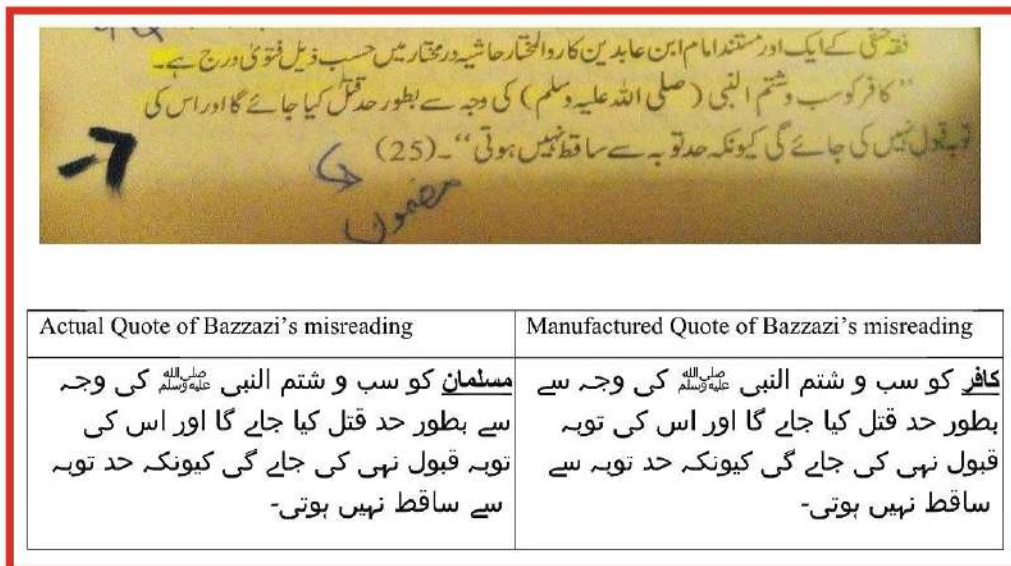 فقہ حنفی کے ایک اور مستند امام ابن عابدین کا ردالمختار حاشیہ درمختار میں حسب ذیل فتویٰ درج ہے۔
"کافر کو سب و شتم النبی (صلی اللہ علیہ وسلم) کی وجہ سے بطور حد قتل کیا جائے گا اور اس کی
توبہ قبول نہیں کی جائے گی کیونکہ حد توبہ سے ساقط نہیں ہوتی"۔ (25)
مضمون
Actual Quote of Bazzazi's misreading
مسلمان کو سب و شتم النبی ﷺ کی وجہ
سے بطور حد قتل کیا جاے گا اور اس کی
توبہ قبول نہی کی جاے گی کیونکہ حد توبہ
سے ساقط نہیں ہوتی-
Manufactured Quote of Bazzazi's misreading
کافر کو سب و شتم النبی ﷺ کی وجہ سے
بطور حد قتل کیا جاے گا اور اس کی توبہ
قبول نہی کی جاے گی کیونکہ حد توبہ سے
ساقط نہیں ہوتی-